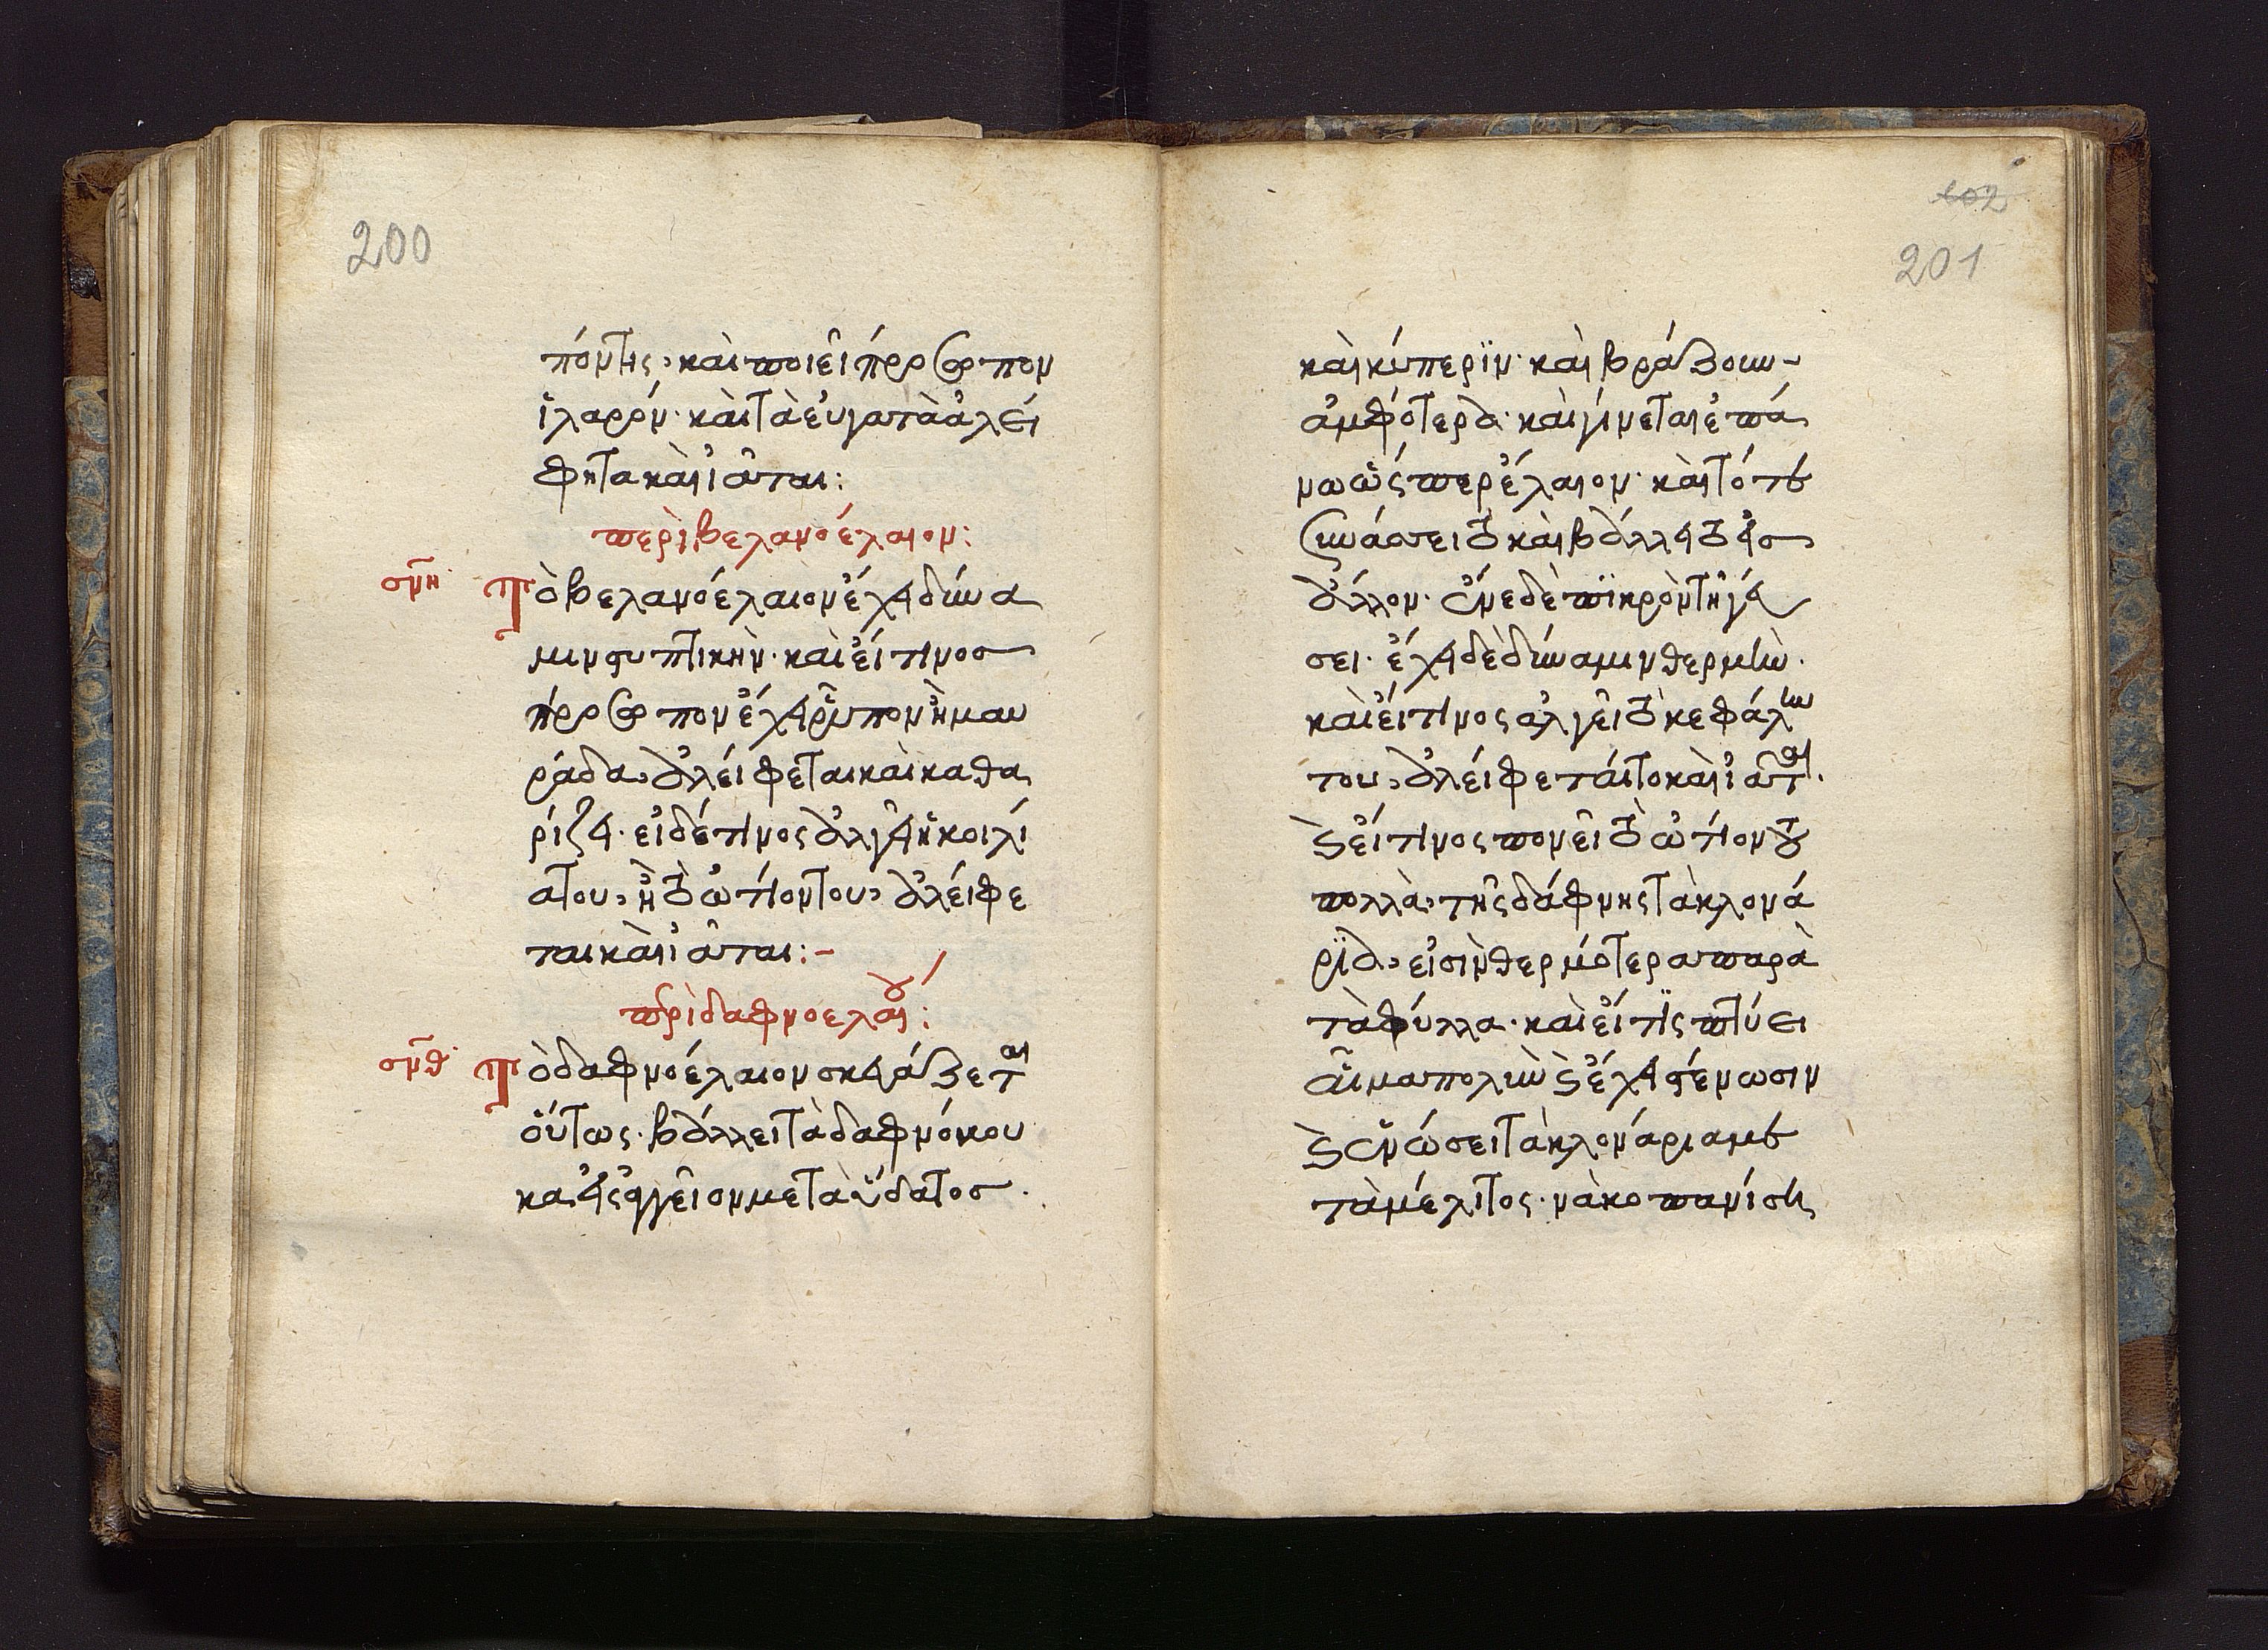 200
πόντης, καὶ ποιεῖ πρόσωπον
ἱλαρόν· καὶ τὰ εὐγατὰ ἀλεί
φηται καὶ ἰᾶται:
περὶ βελανοέλαιον:
σμη Τὸ βελανοέλαιον ἔχει δύνα
μιν ρυπτικήν· καὶ εἴ τινος
πρόσωπον ἔχει ῥύπον ἢ μαυ
ράδα, ἀλείφεται καὶ καθα
ρίζει· εἰ δέ τινος ἀλγεῖ ἡ κοιλί
α του, ἢ τὸ ὠτίον του, ἀλείφε
ται καὶ ἰᾶται:-
περὶ δαφνοελαίου:
σμθ Τὸ δαφνοέλαιον σκευάζεται
οὕτως· βάλλει τὰ δαφνόκου
κα εἰς ἀγγεῖον μετὰ ὕδατος·
102
201
καὶ κύπεριν· καὶ βράζουν
ἀμφότερα· καὶ γίνεται ἐπά
νω ὥσπερ ἔλαιον· καὶ τότε
συνάσσει το καὶ βάλλει το εἰς
ἄλλον· ἔνε δὲ πικρὸν τῇ γεύ
σει· ἔχει δὲ δύναμιν θερμήν·
καὶ εἴ τινος ἀλγεῖ τὸ κεφάλην
του, ἀλείφεταί το καὶ ἰᾶται·
καὶ εἴ τινος πονεῖ τὸ ὠτίον του
πολλὰ, τῆς δάφνης τὰ κλονά
ρια, εἰσὶν θερμότερα παρὰ
τὰ φύλλα· καὶ εἴ τις πτύει
αἷμα πολὺν καὶ ἔχει στένωσιν
καὶ ἑνώσει τὰ κλονάρια με
τὰ μέλιτος· νὰ κοπανίσῃ